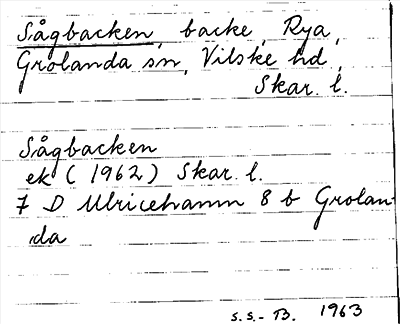 Sågbacken, backe, Rya,
Grolanda sn, Vilske hd,
Skar. l.
Sågbacken
ek (1962) Skar. l.
7 D Ulricehamn 8 b Grolan
da
S.S.-B. 1963